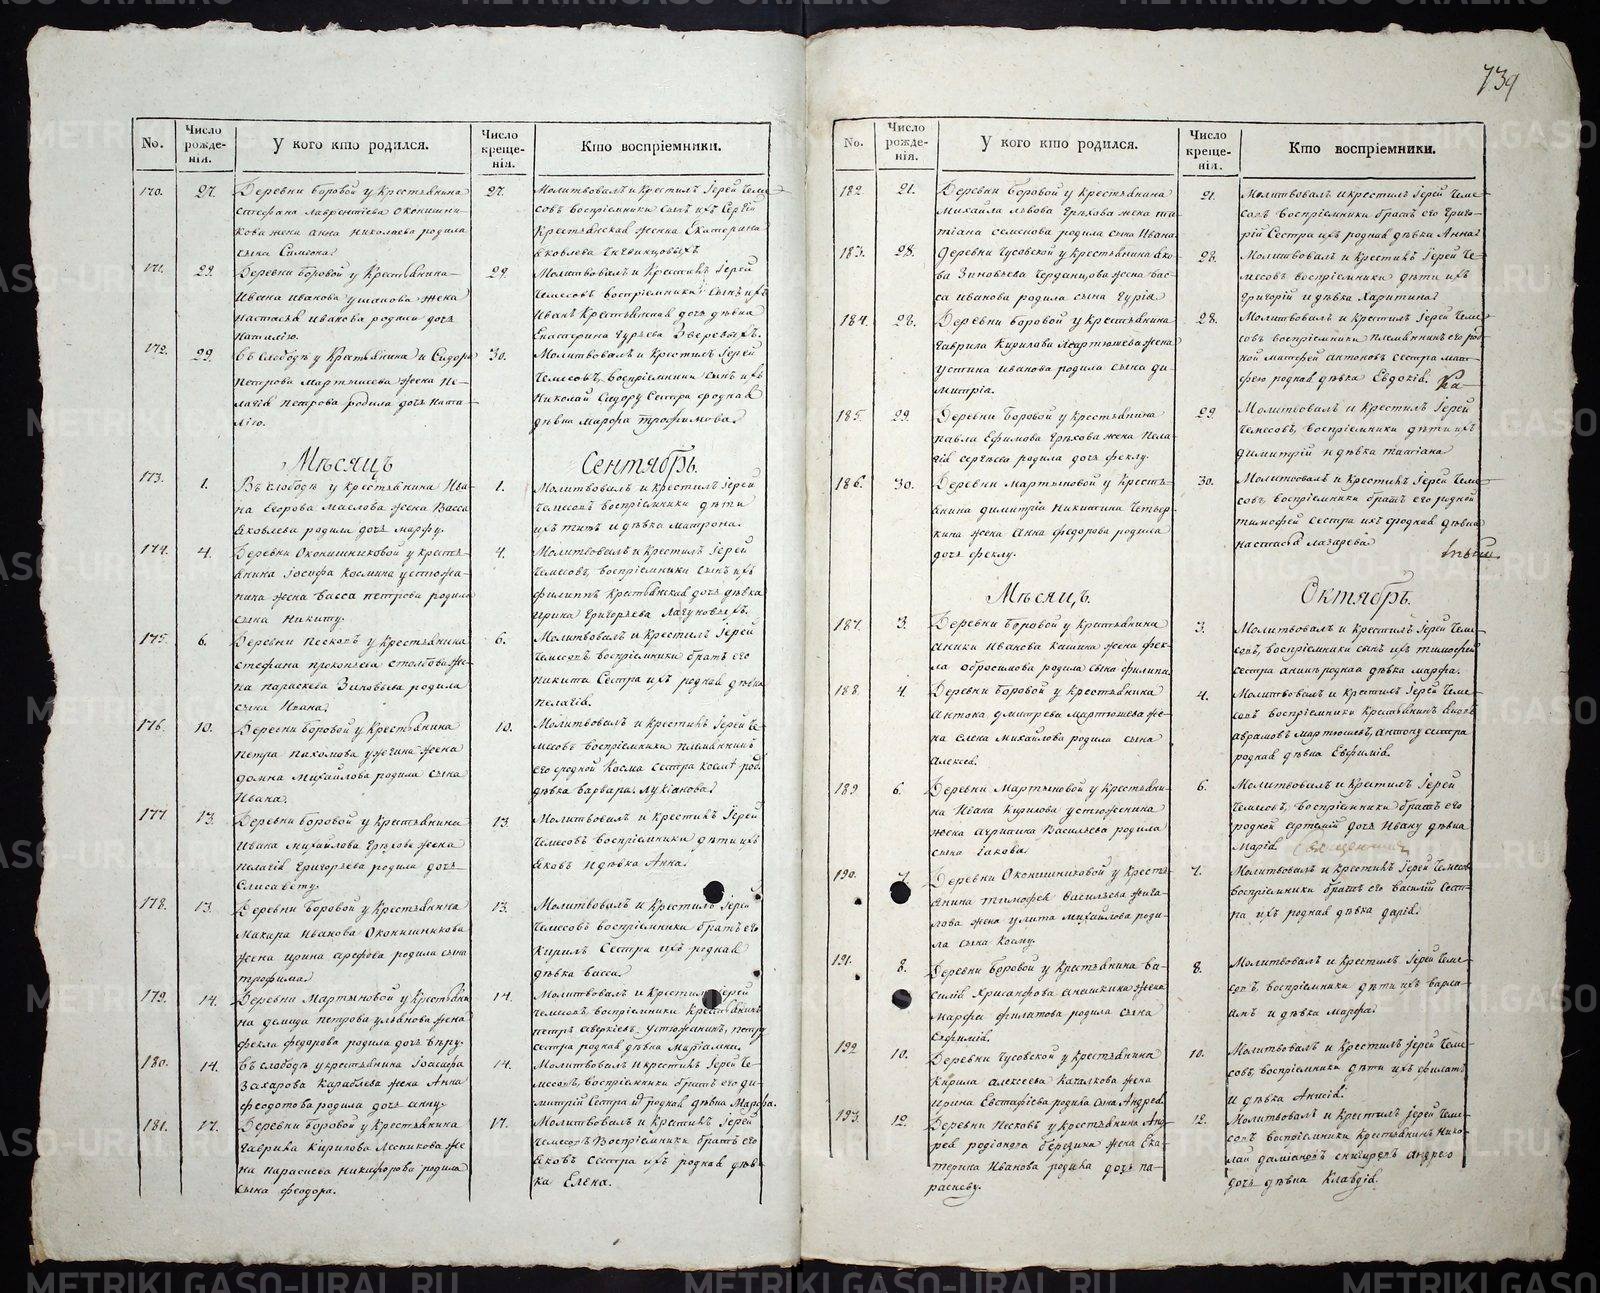 739
No.
Число рожде-нія.
У кого кто родился.
Число креще-нія.
Кто воспріемники.
170.
27.
Деревни Боровой у Крестьянина
Стефана Лаврентіева Оконишни-
кова жена Анна Николаева родила
сына Симеона.
27.
Молитвовалъ и Крестилъ Іерей Чеме-
совъ Воспріемники сынъ ихъ Сергій
Крестьянская женка Екатерина
171.
29.
Деревни Боровой у Крестьянина
Ивана Иванова Ушакова жена
Настасья Иванова родила дочь
Наталію.
29.
Молитвовалъ и Крестилъ Іерей
Чемесовъ воспріемники сынъ ихъ
Иванъ Крестьянская дочь дѣвка
Екатерина Гурьева Зверевыхъ.
172.
29.
Въ слободѣ у Крестьянина Сидора
Петрова Мартюшева жена Пе-
лагія Петрова родила дочь Ната-
лію.
30.
Молитвовалъ и Крестилъ Іерей
Чемесовъ, воспріемники сынъ ихъ
Николай Сидору Сестра сродная
дѣвка Марфа Трофимова.
Мѣсяцъ Сентябрь.
173.
1.
Въ слободѣ у крестьянина Ива-
на Егорова Маслова жена Васса
Яковлева родила дочь Марфу.
1.
Молитвовалъ и крестилъ Іерей
Чемесовъ воспріемники дѣти
ихъ Титъ и дѣвка Матрона.
174.
4.
Деревни Оконишниковой у кресть-
янина Іосифа Космина Устюжа-
нина жена Васса Петрова родила
сына Никиту.
4.
Молитвовалъ и Крестилъ Іерей
Чемесовъ, воспріемники сынъ ихъ
Филиппъ Крестьянская дочь дѣвка
Ирина Григорьева Лагуновыхъ.
175.
6.
Деревни Песковъ у Крестьянина
Стефана Прокопьева Столбова же-
на Параскева Зиновьева родила
сына Ивана.
6.
Молитвовалъ и Крестилъ Іерей
Чемесовъ воспріемники братъ его
Никита Сестра ихъ родная дѣвка
Пелагія.
176.
10.
Деревни Боровой у Крестьянина
Петра Пахомова жена
Домна Михайлова родила сына
Ивана.
10.
Молитвовалъ и крестилъ Іерей Че-
месовъ воспріемники племянникъ
его сродной Косма сестра Космѣ род.
дѣвка Варвара Лукіанова.
177.
13.
Деревни Боровой у Крестьянина
Ивана Михайлова Грѣхова жена
Пелагія Григорьева родила дочь
Елисавету.
13.
Молитвовалъ и Крестилъ Іерей
Чемесовъ воспріемники дѣти ихъ
Яковъ и дѣвка Анна.
178.
13.
Деревни Боровой у Крестьянина
Макара Иванова Оконишникова
жена Ирина Арефова родила сына
Трофима.
13.
Молитвовалъ и Крестилъ Іерей
Чемесовъ воспріемники братъ его
Кирилъ Сестра ихъ родная
дѣвка Васса.
179.
14.
Деревни Мартыновой у Крестьяни
на Демида Петрова Ульянова жена
Фекла Федорова родила дочь Вѣру.
14.
Молитвовалъ и Крестилъ Іерей
Чемесовъ, воспріемники Крестьянинъ
Петръ Аверкіевъ Устюжанинъ, Петру
сестра родная дѣвка Маріамна.
180.
14.
Въ слободѣ у крестьянина Іоасафа
Захарова Караблева жена Анна
Феодотова родила дочь Анну.
14.
Молитвовалъ и крестилъ Іерей Че-
месовъ, воспріемники братъ его Ди-
митрій Сестра родная дѣвка Марфа.
181.
17.
Деревни Боровой у Крестьянина
Гаврила Кирилова Лесникова же
на Параскева Никифорова родила
сына Феодора.
17.
Молитвовалъ и Крестилъ Іерей
Чемесовъ Воспріемники братъ его
Яковъ Сестра ихъ родная дѣв-
ка Елена.
No.
Число рожде-нія.
У кого кто родился.
Число креще-нія.
Кто воспріемники.
182.
21.
Деревни Боровой у Крестьянина
Михайла Львова Грѣхова жена Та-
тіана Семенова родила сына Ивана
21.
Молитвовалъ и крестилъ Іерей Чеме-
совъ Воспріемники братъ его Григо-
рій Сестра ихъ родная дѣвка Анна.
183.
28.
Деревни Чусовской у крестьянина Яко-
ва Зиновьева Черданцова жена Вас-
са Иванова родила сына Гурія
28.
Молитвовалъ и крестилъ Іерей Че-
месовъ воспріемники дѣти ихъ
Григорій и дѣвка Харитина.
184.
28.
Деревни Боровой у крестьянина
Гаврила Кирилова Мартюшева жена
Устина Иванова родила сына Ди-
митрія.
28.
Молитвовалъ и Крестилъ Іерей Чеме-
совъ воспріемники племянникъ его род
ной Матфей Антоновъ сестра Мат-
фею родная дѣвка Евдокія.
Ка-
185.
29.
Деревни Боровой у крестьянина
Павла Ефимова Грѣхова жена Пела-
гія Сергѣева родила дочь Феклу.
29.
Молитвовалъ и Крестилъ Іерей
Чемесовъ, воспріемники дѣти ихъ
Димитрій и дѣвка Татіана
186.
30.
Деревни Мартыновой у Кресть-
янина Димитрія Никитина Четвер-
кина жена Анна Федорова родила
дочь Феклу.
30.
Молитвовалъ и Крестилъ Іерей Чеме-
совъ воспріемники братъ его родной
Тимофей сестра ихъ сродная дѣвка
Настасья Лазарева.
Мѣсяцъ. Октябрь.
187.
3.
Деревни Боровой у Крестьянина
Аники Иванова Кашина жена Фек-
ла Абросимова родила сына Филипа
3.
Молитвовалъ и крестилъ Іерей Чеме-
совъ, воспріемники сынъ ихъ Тимофей
сестра Аники родная дѣвка Марфа.
188.
4.
Деревни Боровой у крестьянина
Антона Дмитрева Мартюшева же-
на Елена Михайлова родила сына
Алексея.
4.
Молитвовалъ и крестилъ Іерей Чеме-
совъ воспріемники Крестьянинъ Яковъ
Аврамовъ Мартюшевъ, Антону сестра
родная дѣвка Евфимія.
189
6.
Деревни Мартыновой у крестьяни-
на Ивана Кирилова Устюженина
жена Агрипина Васильева родила
сына Іакова.
6.
Молитвовалъ и Крестилъ Іерей
Чемесовъ, Воспріемники братъ его
родной Артемій дочь Ивану дѣвка
Марія
190.
7.
Деревни Оконишниковой у кресть
янина Тимофея Васильева Жига-
лова жена Улита Михайлова роди-
ла сына Косму.
7.
Молитвовалъ и Крестилъ Іерей Чемесовъ
воспріемники братъ его Василій Сест-
ра ихъ родная дѣвка Дарія.
191.
8.
Деревни Боровой у Крестьянина Ва-
силія Хрисанфова Аношкина жена
Марфа Филатова родила сына
Евфимія.
8.
Молитвовалъ и Крестилъ Іерей Чеме-
совъ, воспріемники дѣти ихъ Варла-
амъ и дѣвка Марфа.
192
10.
Деревни Чусовской у крестьянина
Кирила Алексеева Качалкова жена
Ирина Евстафіева родила сына Андрея
10.
Молитвовалъ и Крестилъ Іерей Чеме-
совъ, воспріемники дѣти ихъ Филатъ
и дѣвка Анисія.
193.
12.
Деревни Песковъ у крестьянина Анд-
рея Родіонова Березина жена Ека-
терина Иванова родила дочь Па-
раскеву.
12.
Молитвовалъ и Крестилъ Іерей Чеме-
совъ воспріемники Крестьянинъ Нико-
лай Даміановъ Снигиревъ Андрею
дочь дѣвка Клавдія.
METRIKI.GASO-URAL.RU